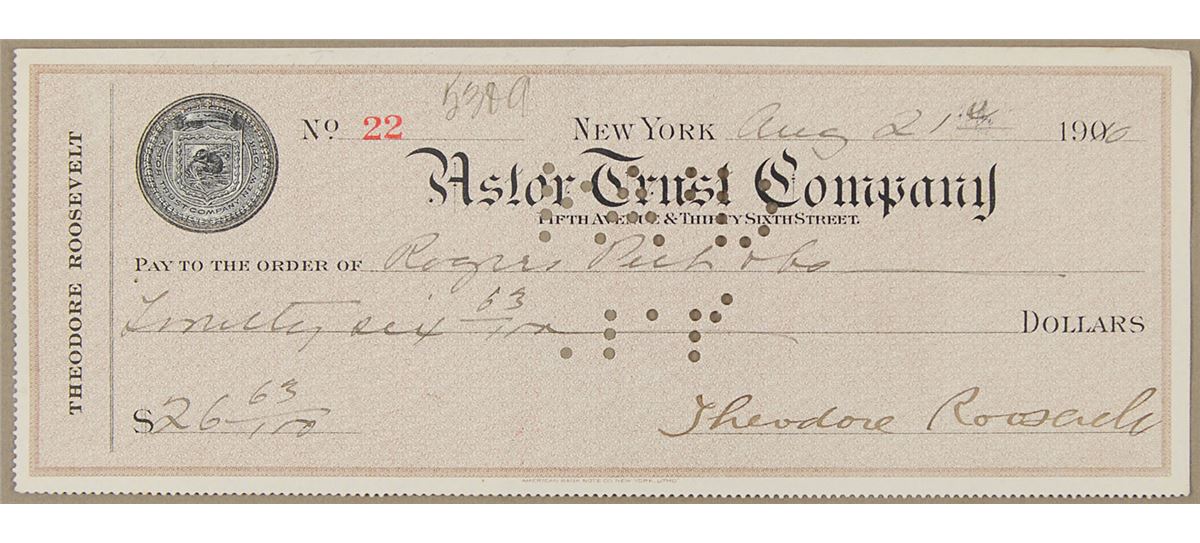 THEODORE ROOSEVELT
5389
No. 22 NEW YORK Aug 21st 1900
Astor Trust Company
FIFTH AVENUE & THIRTY SIXTH STREET.
PAY TO THE ORDER OF Rogers Peet & Co
Twenty six 63/100 DOLLARS
$26 63/100
Theodore Roosevelt
AMERICAN BANK NOTE CO. NEW YORK, LITHO.